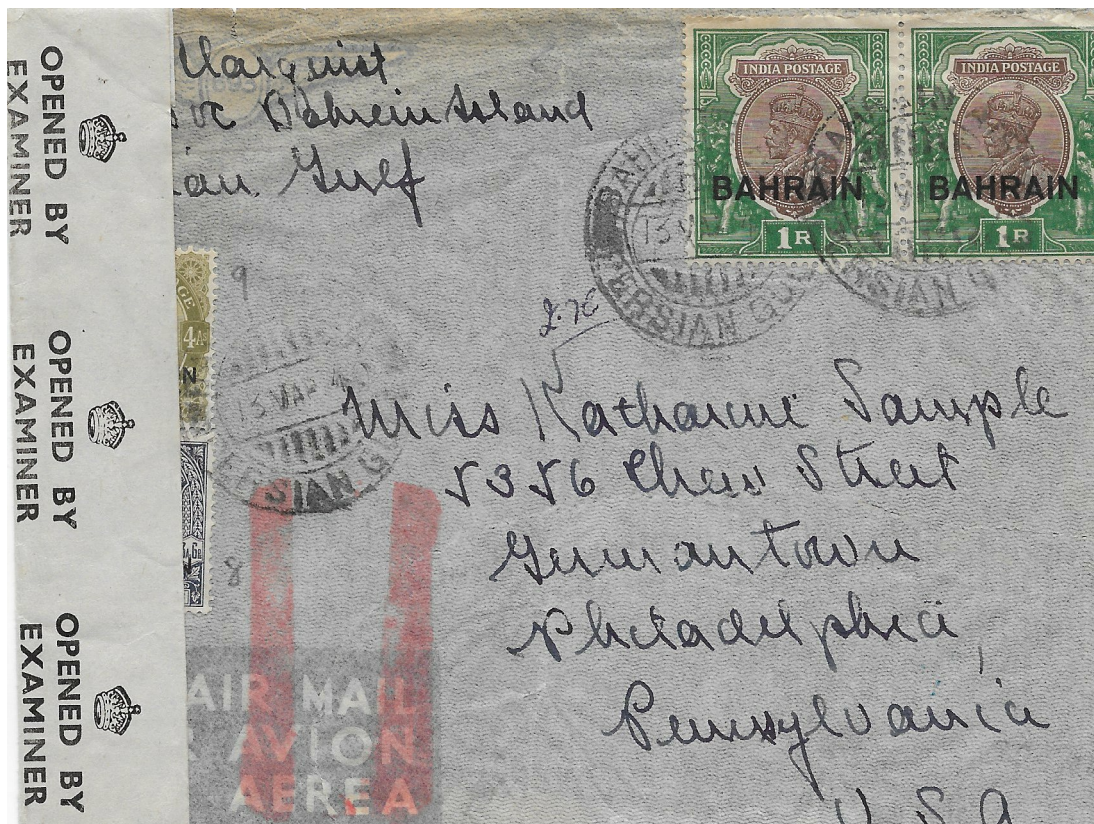 OPENED BY
EXAMINER
OPENED BY
EXAMINER
OPENED BY
EXAMINER
Bahrein Island
ian Gulf
INDIA POSTAGE
BAHRAIN
1R
INDIA POSTAGE
BAHRAIN
1R
PERSIAN GU
RSIAN G
AGE
4As
N
6
9
8
13 MAR 4
SIAN G
2.70
Miss Katharine Sample
5356 Chew Street
Germantown
Philadelphia,
Pennsylvania
U.S.A
AIR MAIL
AVION
AEREA